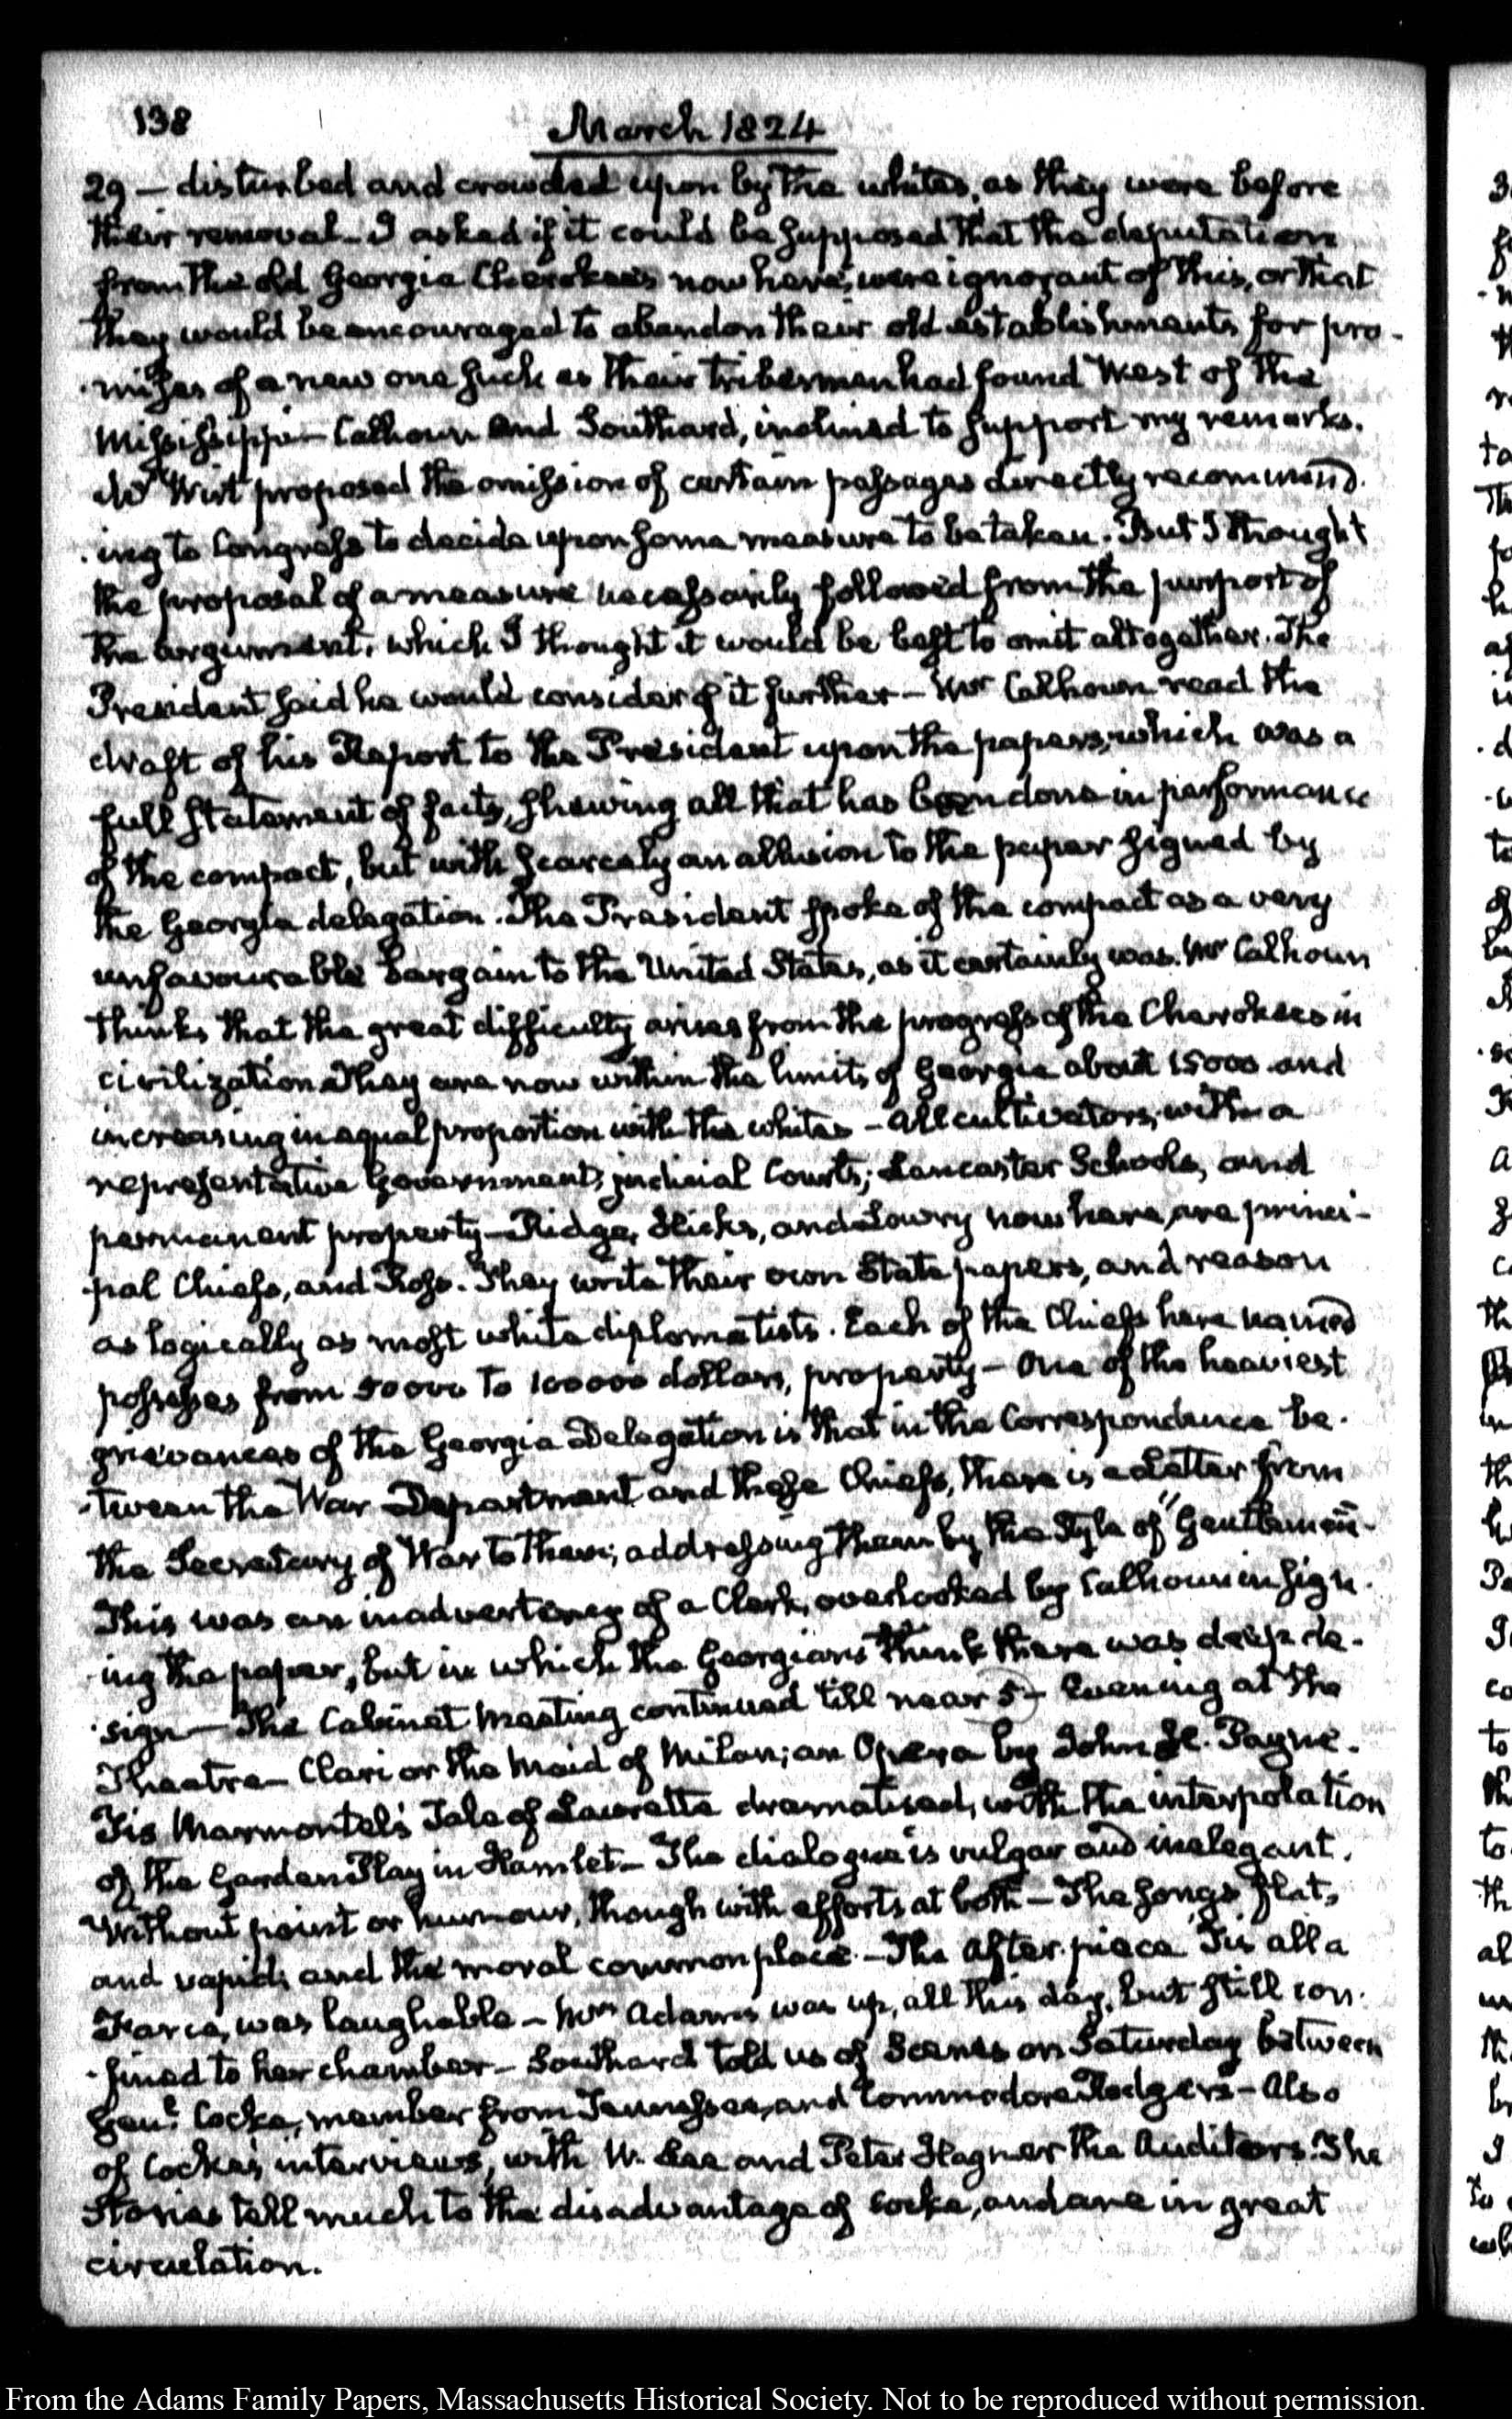 138
March 1824
29 — disturbed and crowded upon by the whites, as they were before
their removal - I asked if it could be supposed that the deputation
from the old Georgia Cherokees now here, were ignorant of this, or that
they would be encouraged to abandon their old establishments for pro-
-mises of a new one such as their tribesmen had found West of the
Mississippi - Calhoun and Southard, inclined to support my remarks.
Mr Wirt proposed the omission of certain passages directly recommend-
-ing to Congress to decide upon some measure to be taken. But I thought
the proposal of a measure necessarily followed from the purport of
the argument, which I thought it would be best to omit altogether. The
President said he would consider of it further - Mr Calhoun read the
draft of his Report to the President upon the papers, which was a
full statement of facts, shewing all that has been done in performance
of the compact, but with scarcely an allusion to the paper signed by
the Georgia delegation. The President spoke of the compact as a very
unfavourable bargain to the United States, as it certainly was. Mr Calhoun
thinks that the great difficulty arises from the progress of the Cherokees in
civilization. They are now within the limits of Georgia about 15000 and
increasing in equal proportion with the whites - all cultivators, with a
representative Government, judicial Courts; Lancaster Schools, and
permanent property - Ridge, Hicks, and Lowry now here, are princi-
-pal Chiefs, and Ross. They write their own State papers, and reason
as logically as most white diplomatists. Each of the Chiefs here named
possesses from 50000 to 100000 dollars, property - One of the heaviest
grievances of the Georgia Delegation is that in the Correspondence be-
-tween the War Department and these Chiefs, there is a Letter from
the Secretary of War to them; addressing them by the Style of "Gentlemen"-
This was an inadvertency of a Clerk, overlooked by Calhoun in sign-
-ing the paper, but in which the Georgians think there was deep de-
-sign - The Cabinet Meeting continued till near 5 - Evening at the
Theatre - Clari or the Maid of Milan; an Opera by John H. Payne.
Tis Marmontel's Tale of Lauretta dramatised, with the interpolation
of the Garden Play in Hamlet - The dialogue is vulgar and inelegant.
Without point or humour, though with efforts at both - The songs flat,
and vapid; and the moral common place - The After-piece Tis all a
Farce, was laughable - Mrs Adams was up, all this day, but still con-
-fined to her chamber - Southard told us of Scenes on Saturday between
Genl Cocke, member from Tennessee, and Commodore Rodgers - Also
of Cocke's interviews, with W. Lee and Peter Hagner the Auditors. The
Stories tell much to the disadvantage of Cocke, and are in great
circulation.
From the Adams Family Papers, Massachusetts Historical Society. Not to be reproduced without permission.